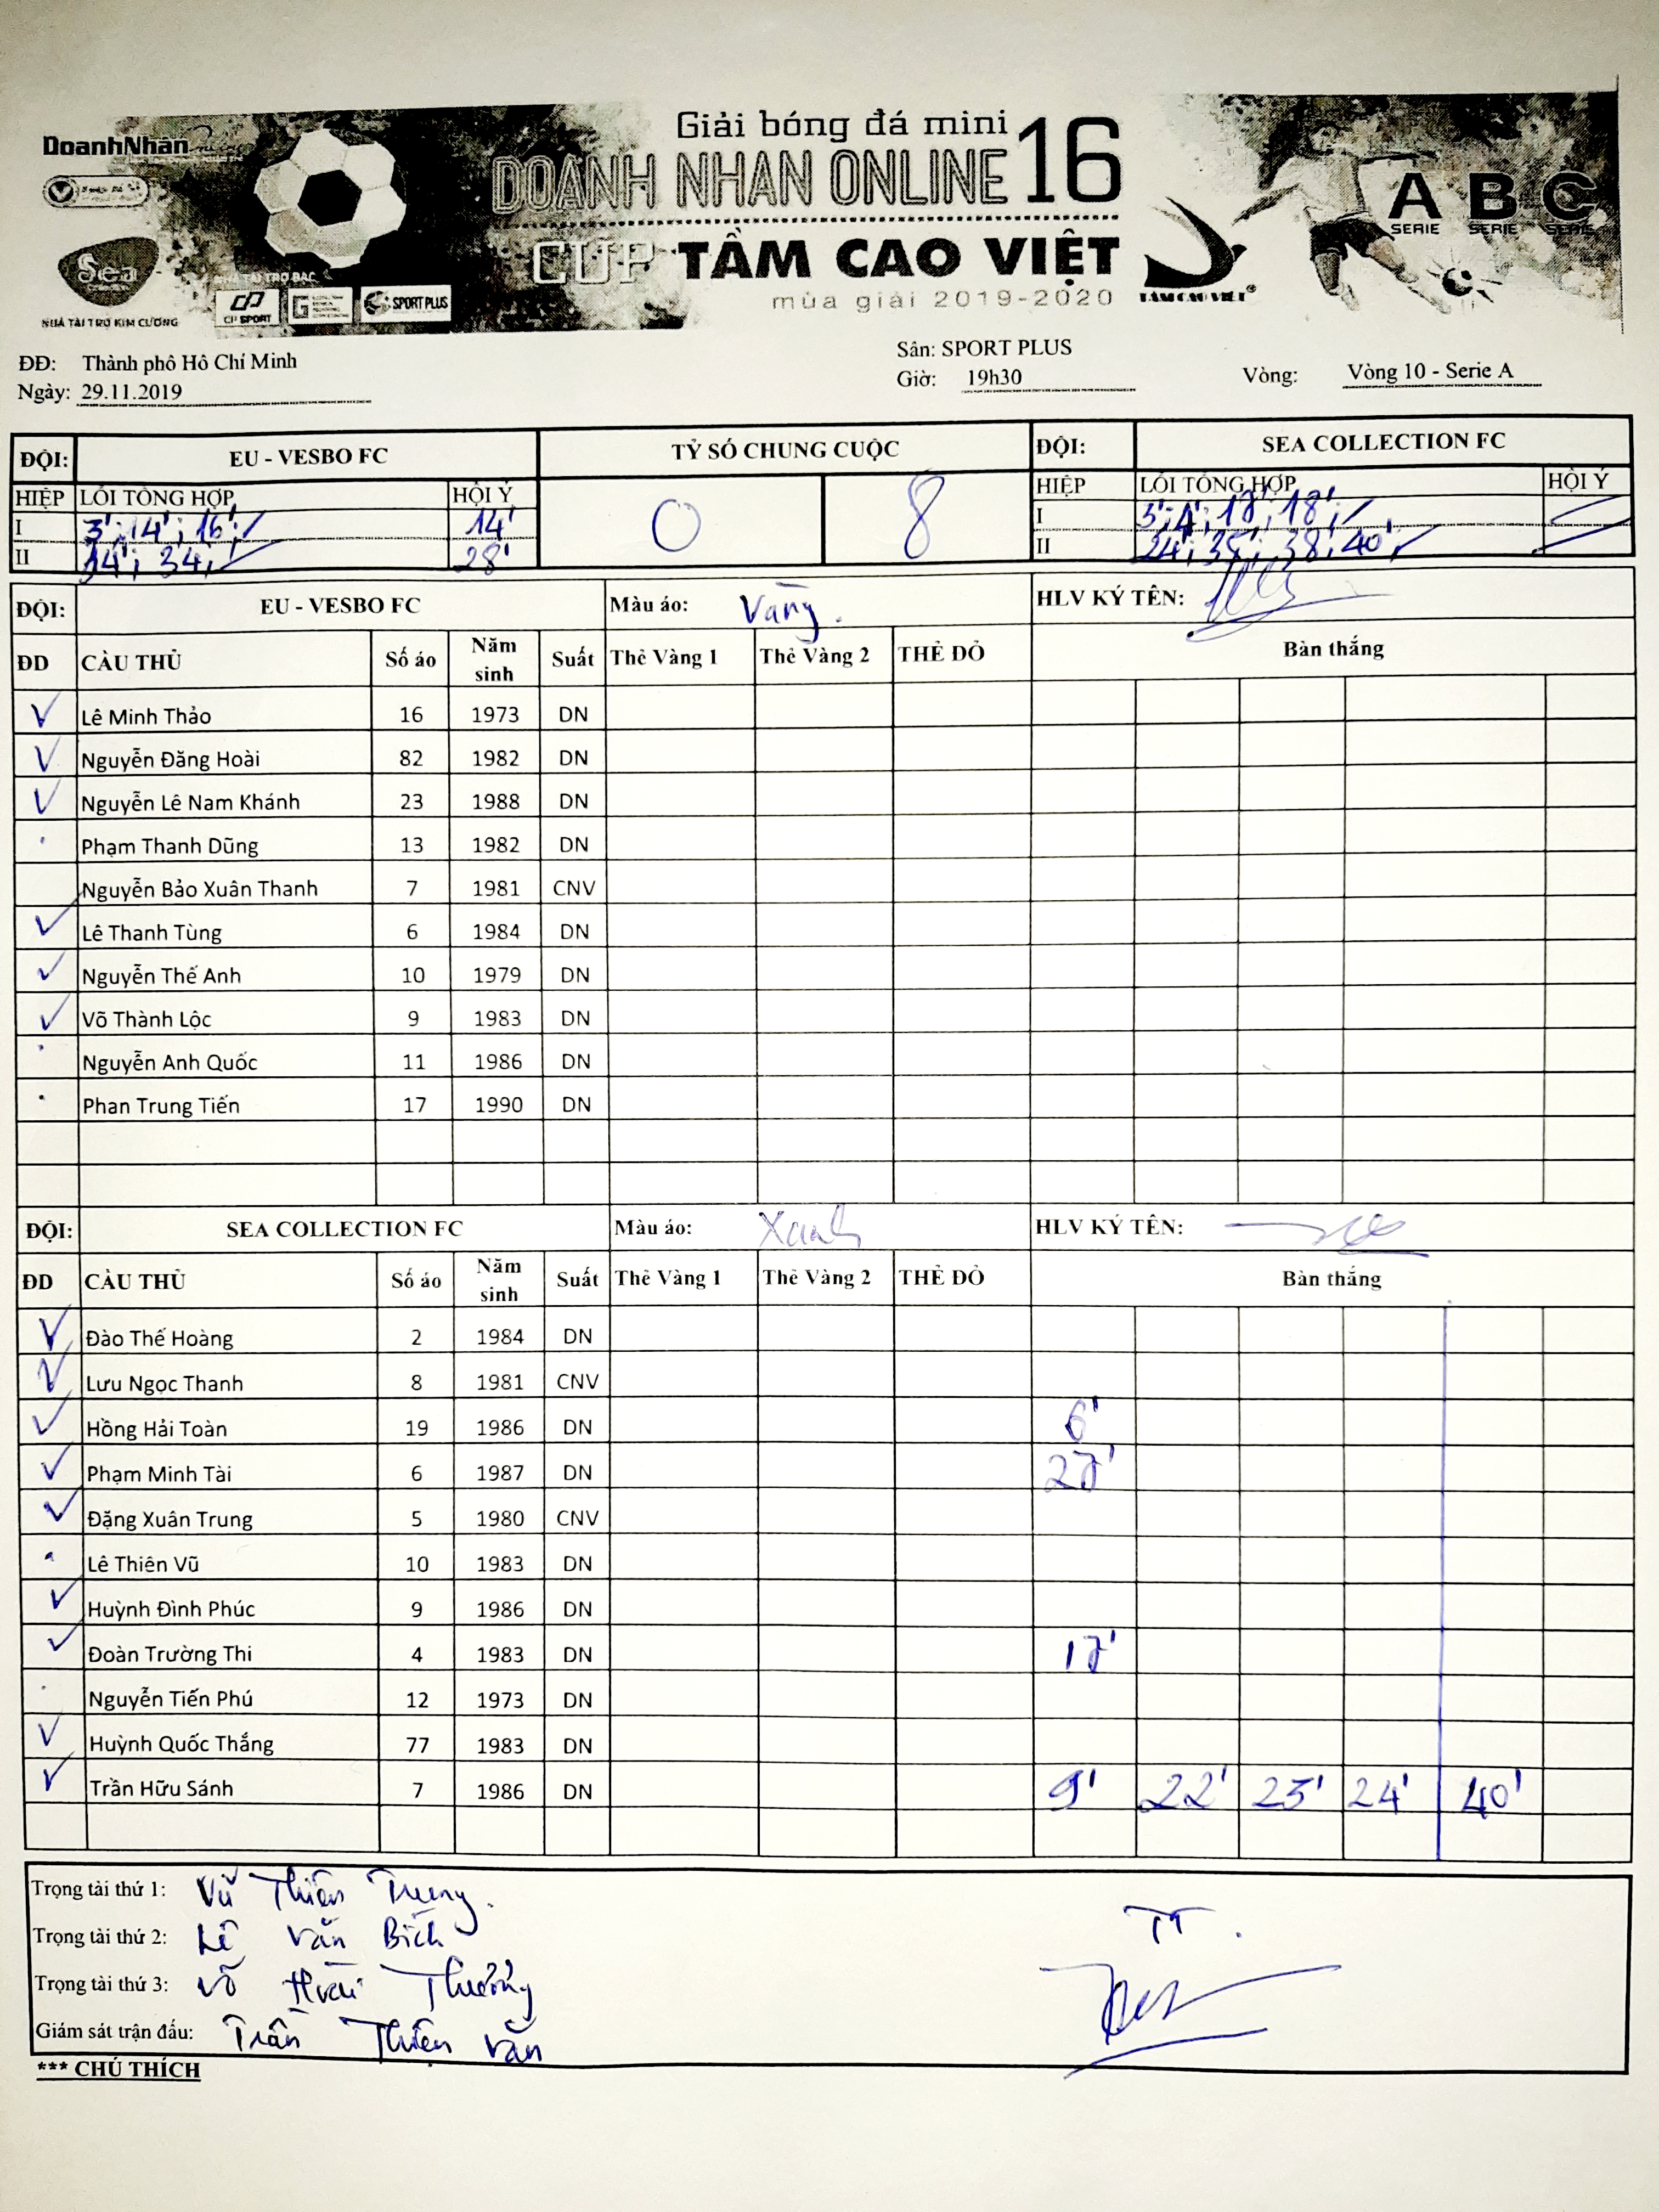 Giải bóng đá mini
DoanhNhân
DOANH NHAN ONLINE 16
A B C
SERIE SERIE SERIE
CUP TẦM CAO VIỆT
Sea
NHÀ TÀI TRỢ BẠC
mùa giải 2019-2020
TẦM CAO VIỆT
CP SPORT
SPORT PLUS
NHÀ TÀI TRỢ KIM CƯƠNG
ĐĐ: Thành phố Hồ Chí Minh Sân: SPORT PLUS
Ngày: 29.11.2019 Giờ: 19h30 Vòng: Vòng 10 - Serie A
ĐỘI: EU - VESBO FC TỶ SỐ CHUNG CUỘC ĐỘI: SEA COLLECTION FC
HIỆP LỖI TỔNG HỢP HỘI Ý 0 8 HIỆP LỖI TỔNG HỢP HỘI Ý
I 3'; 14'; 16'; 14' I 3'; 4'; 18';
II 34'; 28' II 24'; 38'; 40';
ĐỘI: EU - VESBO FC Màu áo: Vàng. HLV KÝ TÊN:
ĐD CẦU THỦ Số áo Năm sinh Suất Thẻ Vàng 1 Thẻ Vàng 2 THẺ ĐỎ Bàn thắng
Lê Minh Thảo 16 1973 DN
Nguyễn Đăng Hoài 82 1982 DN
Nguyễn Lê Nam Khánh 23 1988 DN
Phạm Thanh Dũng 13 1982 DN
Nguyễn Bảo Xuân Thanh 7 1981 CNV
Lê Thanh Tùng 6 1984 DN
Nguyễn Thế Anh 10 1979 DN
Võ Thành Lộc 9 1983 DN
Nguyễn Anh Quốc 11 1986 DN
Phan Trung Tiến 17 1990 DN
ĐỘI: SEA COLLECTION FC Màu áo: Xanh HLV KÝ TÊN:
ĐD CẦU THỦ Số áo Năm sinh Suất Thẻ Vàng 1 Thẻ Vàng 2 THẺ ĐỎ Bàn thắng
Đào Thế Hoàng 2 1984 DN
Lưu Ngọc Thanh 8 1981 CNV
Hồng Hải Toàn 19 1986 DN 6'
Phạm Minh Tài 6 1987 DN 27'
Đặng Xuân Trung 5 1980 CNV
Lê Thiên Vũ 10 1983 DN
Huỳnh Đình Phúc 9 1986 DN
Đoàn Trường Thi 4 1983 DN 17'
Nguyễn Tiến Phú 12 1973 DN
Huỳnh Quốc Thắng 77 1983 DN
Trần Hữu Sánh 7 1986 DN 9' 22' 23' 24' 40'
Trọng tài thứ 1: Vũ Thiên Trung.
Trọng tài thứ 2: Lê Văn Bích
Trọng tài thứ 3: Võ Hoài Thưởng
Giám sát trận đấu: Trần Thiện Văn
TT.
*** CHÚ THÍCH